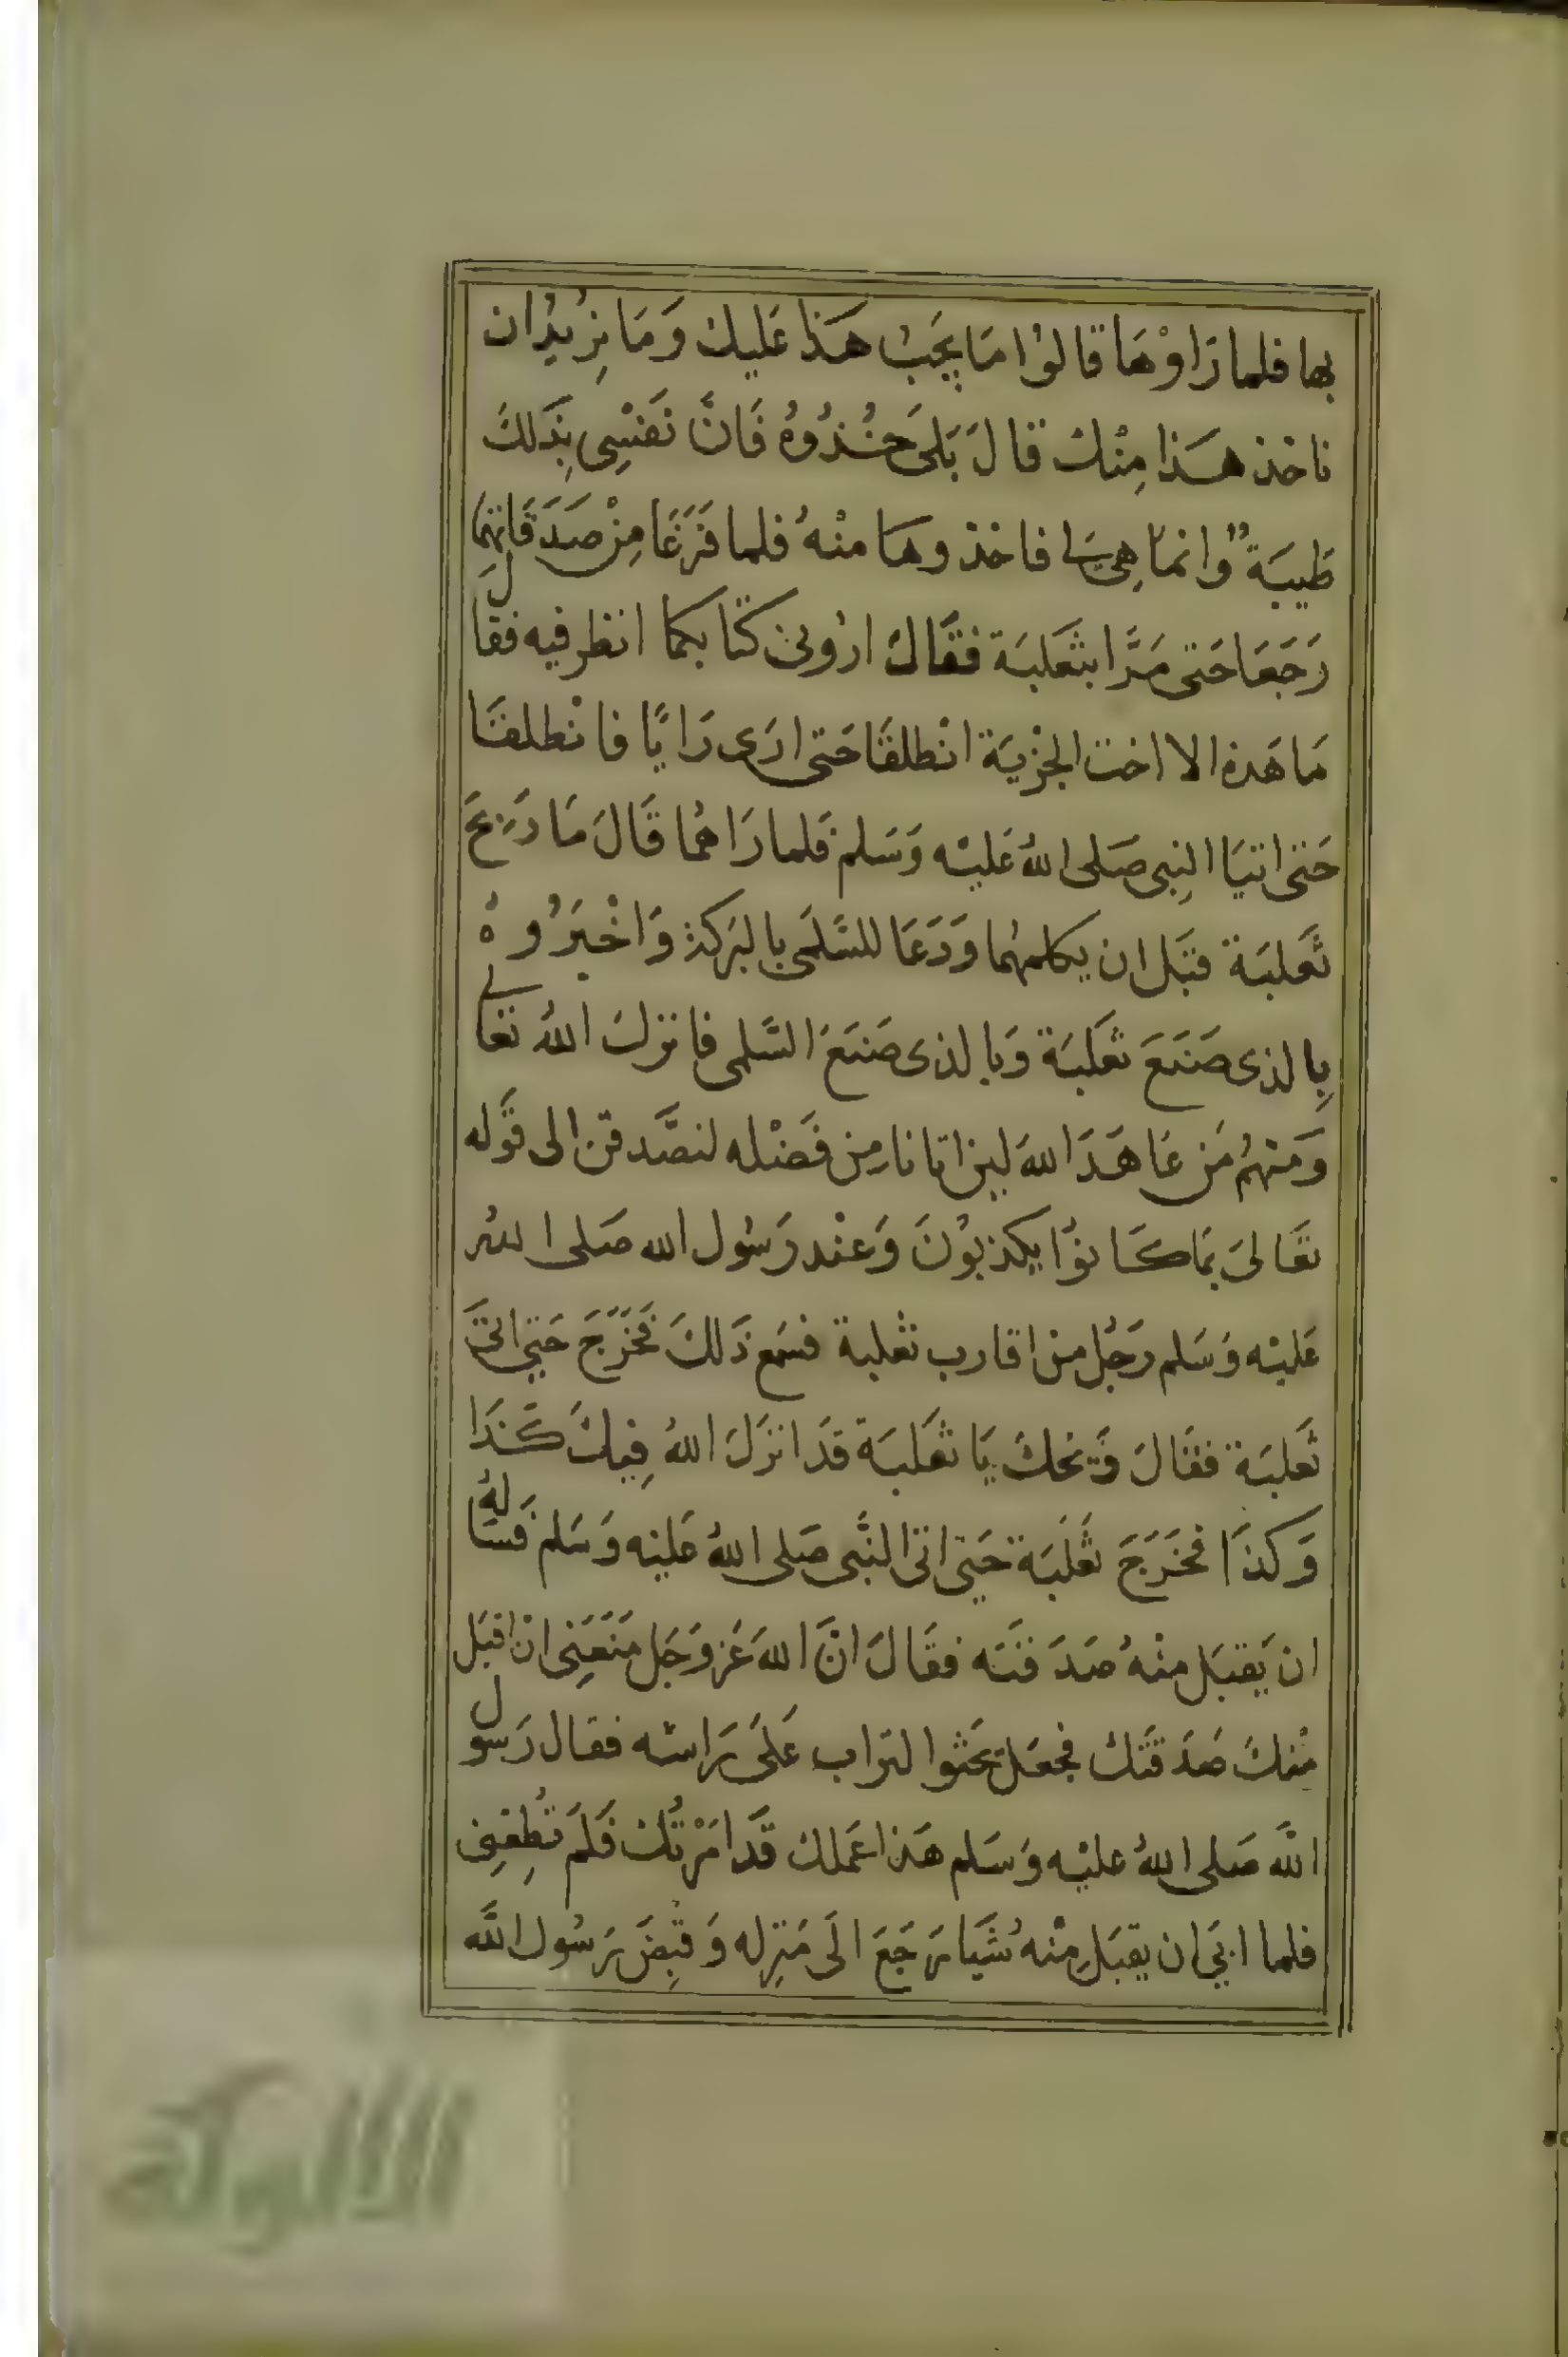 بها فلما رَاوْهَا قالوُا مَا يجَبُ هَذا عَليك وَمَا نِرُيدُ ان
ناخذ هَذا مِنْك قالَ بَلىَ خُذُوهُ فَانَّ نَفسْىِ بِذَلكَ
طَيبَةٌ وانماَ هِىَ لى فاخذوهَا منْهُ فلما فَرَغَا مِنْ صَدَقَاتهِمَا
رَجَعَا حَتى مَرَّا بثَعَلبَة فقَالَ ارُونى كتَابكما انظر فيه فقال
مَا هَذه الا اخت الجزْيَة انْطلقَا حَتى ارَى رَايًا فانْطلقَا
حَتى اتيَا النِبى صَلى اللهُ عَليْه وَسَلم فَلما رَاهُما قَالَ مَا وَيحَ
ثَعَلبَة قبَل ان يكلمهُما وَدَعَا للسَّلَمى بالبَركة وَاخْبَرُوهُ
بِالذى صَنَعَ ثعَلبَة وَبالذى صَنَعَ السَّلمى فانزلَ اللهُ تعَالى
وَمَنْهُم مَن عَاهَدَ اللهَ لين اتانا مِن فَضْله لنصَّدقن الى قَوله
تعَالىَ بمَا كَانوُا يكذبوُنَ وَعنْد رَسُول الله صَلى اللهُ
عَليْه وَسَلم رَجُل من اقارب ثعلبة فسَمع ذَلكَ فخَرَجَ حَتى اتىَ
ثَعَلبَة فقَالَ وَيحكَ يَا ثعَلبَة قدَ انزَلَ اللهُ فِيكَ كَذَا
وَكذَا فخَرَجَ ثعَلَبَة حَتى اتى النَّبى صَلى اللهُ عَليْه وَسَلم فَسَالهُ
ان يَقبَل منْهُ صَدَقتَه فقَالَ انَّ اللهَ عَز وَجَل مَنَعَنِى انْ اقبَل
مْنكَ صَدَقَتكَ فجعَل يَحَثوا التراب عَلىَ رَاسْه فقال رَسول
اللهَ صَلى اللهُ عليْه وَسَلم هَذا عَملك قَد امَرْتُك فَلَم تُطِعْنِى
فلما ابَى ان يقبَل مِنْهُ شَيَا رَجَعَ الَى مَنزِله وَقُبِضَ رَسُول اللَّه
الألوكة